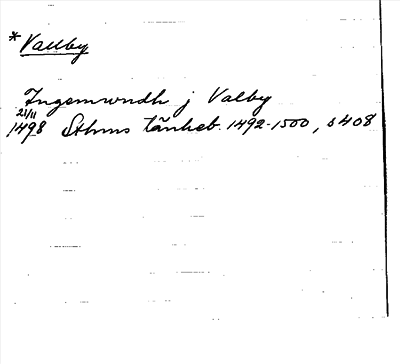 *Vallby
Ingemwndh j Valby
21/11
1498 Sthms tänkeb. 1492-1500, s 408